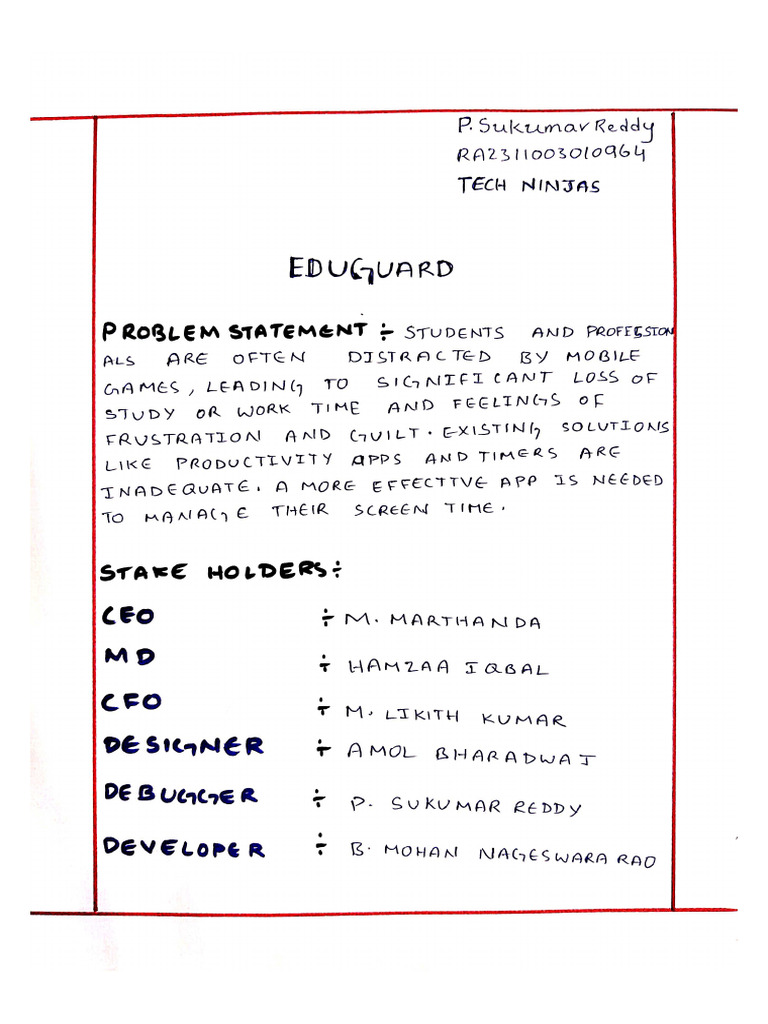 P. Sukumar Reddy
RA2311003010964
TECH NINJAS
EDUGUARD
PROBLEM STATEMENT :- STUDENTS AND PROFESSION
ALS ARE OFTEN DISTRACTED BY MOBILE
GAMES, LEADING TO SIGNIFICANT LOSS OF
STUDY OR WORK TIME AND FEELINGS OF
FRUSTRATION AND GUILT. EXISTING SOLUTIONS
LIKE PRODUCTIVITY APPS AND TIMERS ARE
INADEQUATE. A MORE EFFECTIVE APP IS NEEDED
TO MANAGE THEIR SCREEN TIME.
STAKE HOLDERS :-
CEO :- M. MARTHANDA
MD :- HAMZAA IQBAL
CFO :- M. LIKITH KUMAR
DESIGNER :- AMOL BHARADWAJ
DEBUGGER :- P. SUKUMAR REDDY
DEVELOPER :- B. MOHAN NAGESWARA RAO